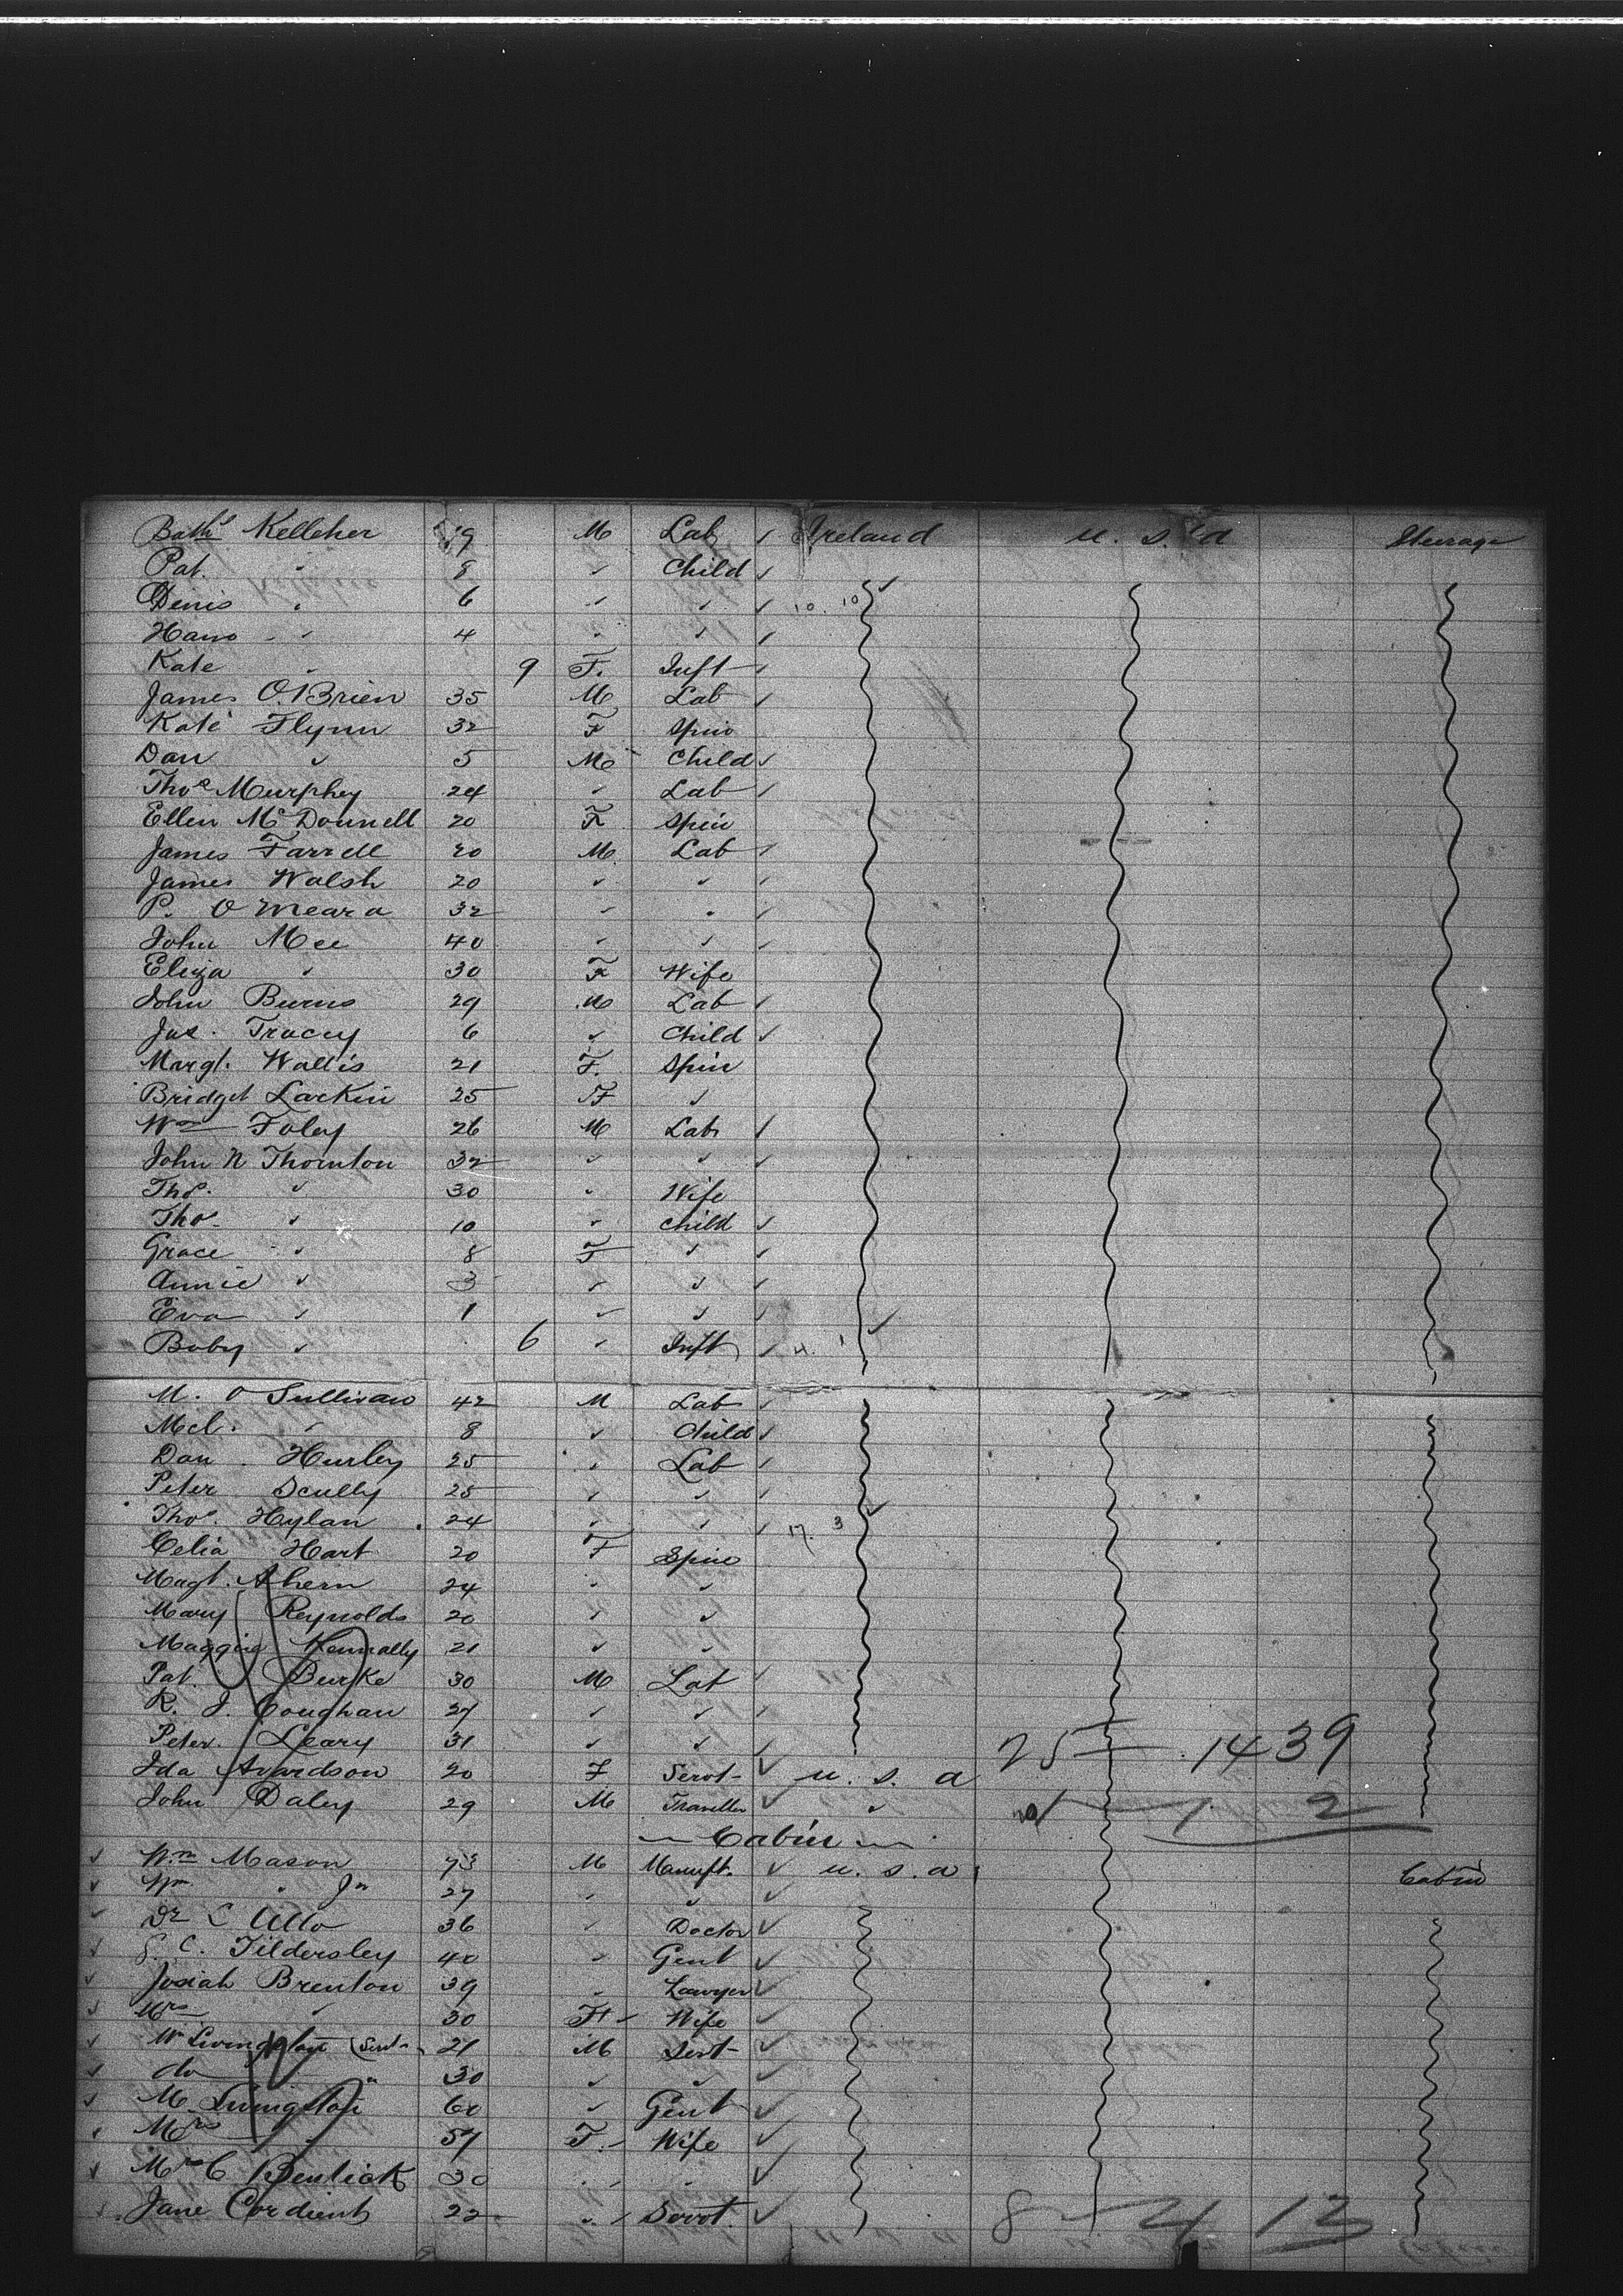 Bath Kelleher 19 M Lab Ireland U. S. A Steerage
Pat. " 8 " Child
Denis " 6 " " 10. 10
Hano " 4 " "
Kate " 9 F. Inft
James O'Brien 35 M Lab
Kate Flynn 32 F Spin
Dan " 5 M Child
Thos Murphy 24 " Lab
Ellen McDonnell 20 F Spin
James Farrell 20 M Lab
James Walsh 20 " "
P. O Meara 32 " "
John Mee 40 " "
Eliza " 30 F Wife
John Burns 29 M Lab
Jas. Tracey 6 " Child
Margt. Wallis 21 F. Spin
Bridget Larkin 25 F "
Wm Foley 26 M Lab
John N Thornton 32 " "
Thos. " 30 " Wife
Thos " 10 " Child
Grace " 8 F "
Annie " 3 " "
Eva " 1 " "
Baby " 6 " Inft 4. 1
M. O Sullivan 42 M Lab
Mcl. " 8 " Child
Dan Hurley 25 " Lab
Peter Scully 25 " "
Thos. Hylan 24 " " 17. 3
Celia Hart 20 F Spin
Magt. Ahern 24 " "
Mary Reynolds 20 " "
Maggie Kennally 21 " "
Pat. Burke 30 M Lab
R. J. Coughan 27 " "
Peter Leary 31 " " 25 1439
Ida 20 F Servt U. S. A
John Daley 29 M Traveller " 1 2
Cabin
Wm Mason 73 M Manuft. U. S. A Cabin
Wm " Jn 27 " "
Dr 36 " Doctor
C. Tildersley 40 " Gent
Josiah Brenton 39 " Lawyer
Mrs " 30 F Wife
Mr Livingston (Servt 21 M Servt
do " 30 " "
M Livingston 60 " Gent
Mrs " 57 F. Wife
Mrs C Bentick 30 " "
Jane Cordient 22 " Servt. 8 4 13